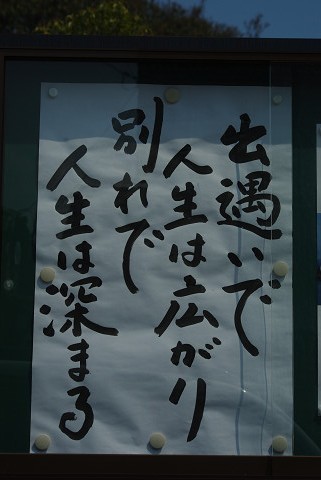 出遇いで
人生は広がり
別れで
人生は深まる